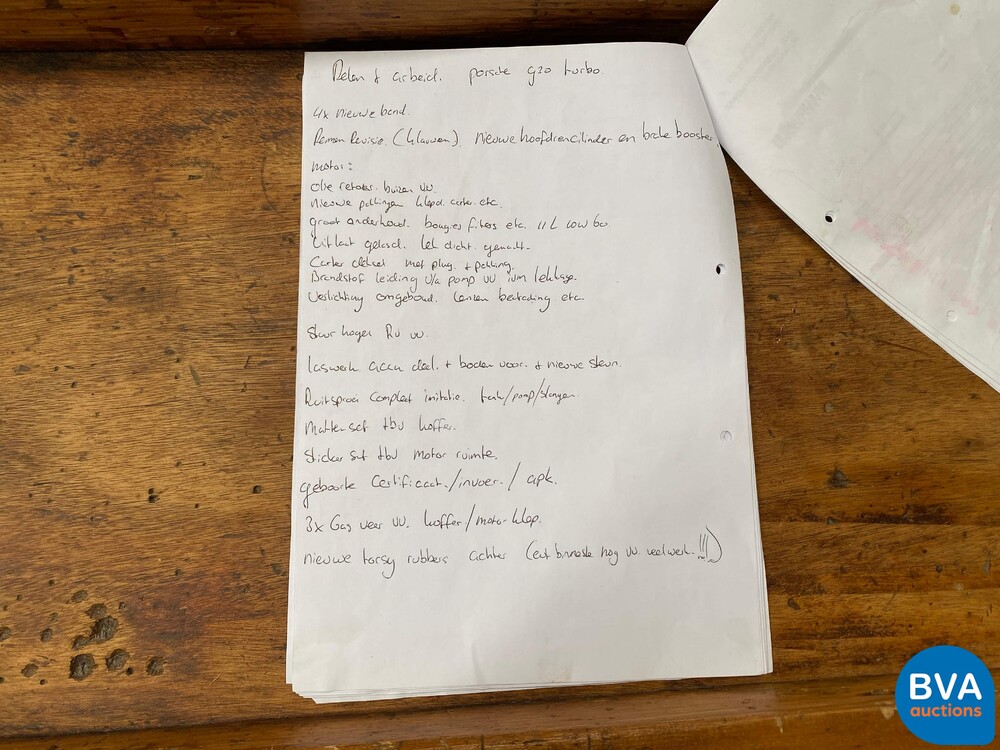 Delen + arbeid. porsche 930 turbo.
4x nieuwe band.
Remmen Revisie. (klauwen). nieuwe hoofdremcilinder en brake booster.
motor:
olie retour. buizen vv.
nieuwe pakkingen klepd. carter. etc.
groot onderhoud. bougies filters etc. 11 L 10W60
Uitlaat gelasd. lek dicht gemaakt.
Carter deksel met plug. + pakking.
Brandstof leiding v/a pomp vv ivm lekkage.
Verlichting omgebouwd. lenzen bedrading etc.
Stuur kogel RV vv.
laswerk accu deel. + bodem voor. + nieuwe steun.
Ruitsproei compleet imitatie. tank/pomp/slangen
Mattenset tbv koffer.
Sticker set tbv motor ruimte.
geboorte Certificaat./invoer./ apk.
3x Gas veer vv. koffer/motorklep.
nieuwe torsy rubbers achter (evt binnenste nog vv veel werk.!!!)
BVA
auctions